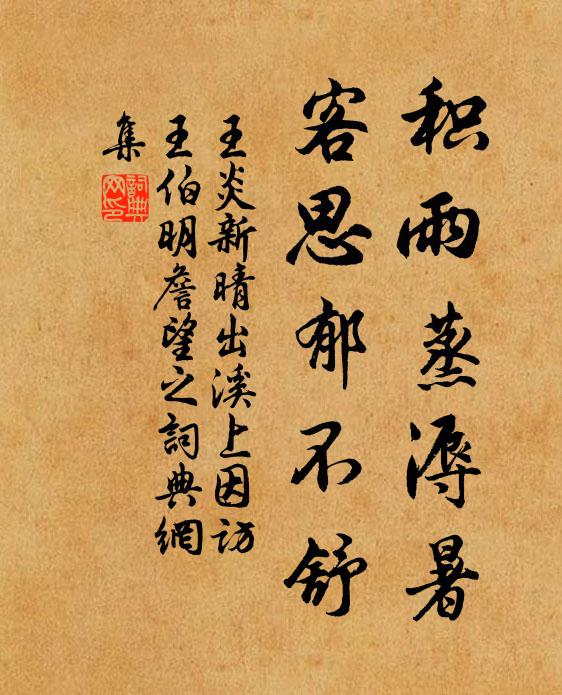 积雨蒸溽暑
客思郁不舒
王炎新晴出溪上因访
王伯明詹望之詞典網
集
詞典
网印